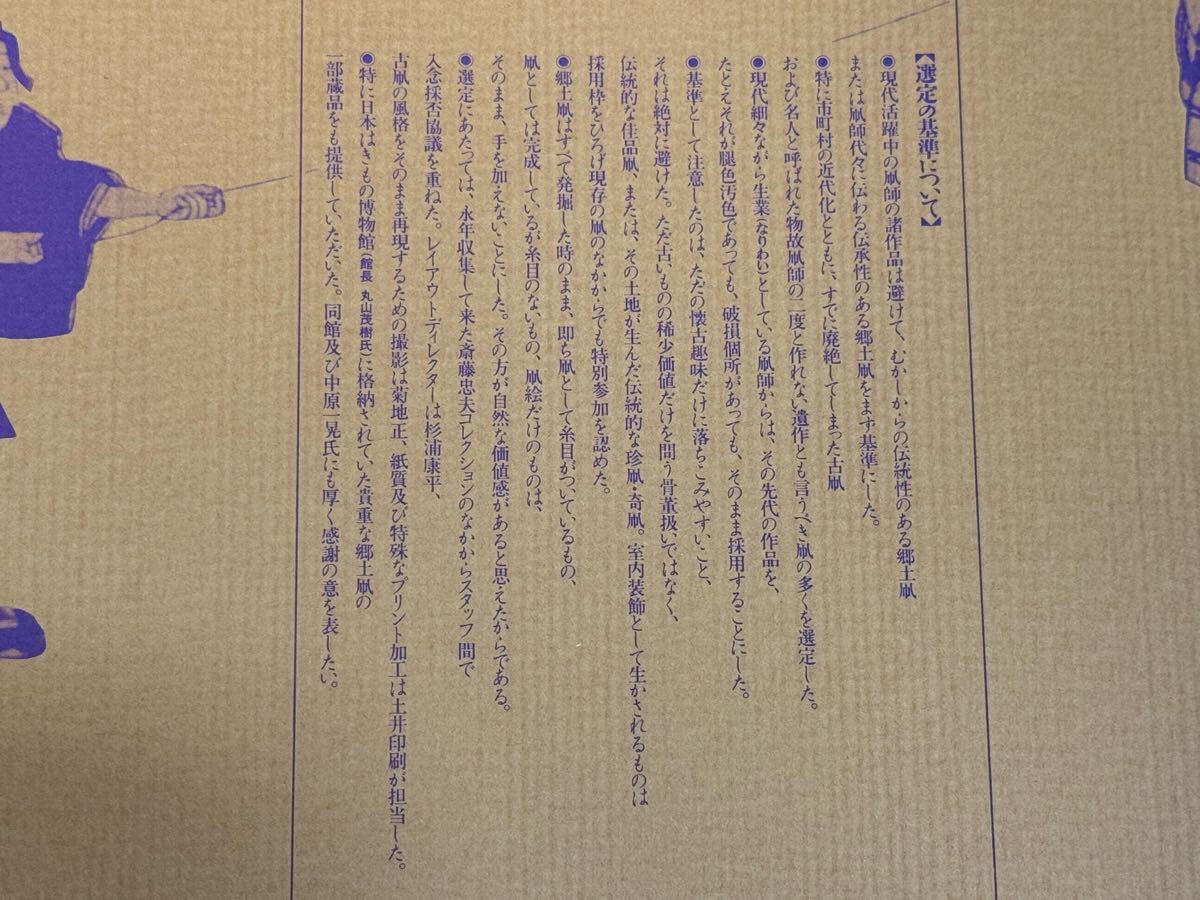 【選定の基準について】
●現代活躍中の凧師の諸作品は避けて、むかしからの伝統性のある郷土凧
または凧師代々に伝わる伝承性のある郷土凧をまず基準にした。
●特に市町村の近代化とともに、すでに廃絶してしまった古凧
および名人と呼ばれた物故凧師の二度と作れない遺作とも言うべき凧の多くを選定した。
●現代細々ながら生業(なりわい)としている凧師からは、その先代の作品を、
たとえそれが腿色汚色であっても、破損個所があっても、そのまま採用することにした。
●基準として注意したのは、ただの懐古趣味だけに落ちこみやすいこと、
それは絶対に避けた。ただ古いものの稀少価値だけを問う骨董扱いではなく、
伝統的な佳品凧、または、その土地が生んだ伝統的な珍凧・奇凧。室内装飾として生かされるものは
採用枠をひろげ現存の凧のなかからでも特別参加を認めた。
●郷土凧はすべて発掘した時のまま、即ち凧として糸目がついているもの、
凧としては完成しているが糸目のないもの、凧絵だけのものは、
そのまま、手を加えないことにした。その方が自然な価値感があると思えたからである。
●選定にあたっては、永年収集して来た斎藤忠夫コレクションのなかからスタッフ間で
入念採否協議を重ねた。レイアウトディレクターは杉浦康平、
古凧の風格をそのまま再現するための撮影は菊地正、紙質及び特殊なプリント加工は土井印刷が担当した。
●特に日本はきもの博物館(館長 丸山茂樹氏)に格納されていた貴重な郷土凧の
一部蔵品をも提供していただいた。同館及び中原一晃氏にも厚く感謝の意を表したい。